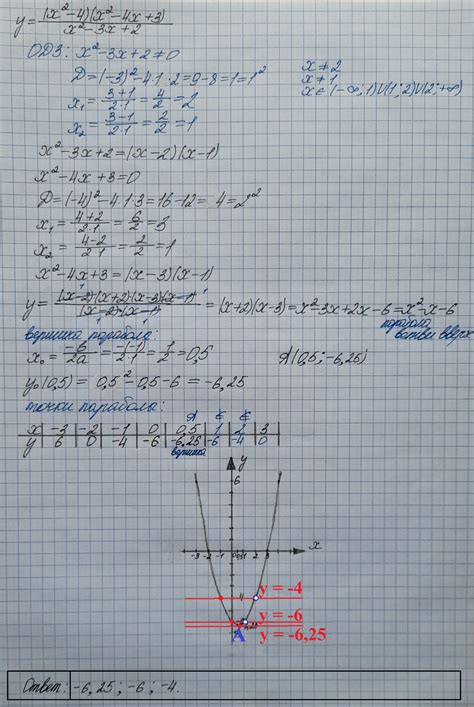 y = (x²-4)(x²-4x+3) / x²-3x+2
ОДЗ: x²-3x+2≠0
D=(-3)²-4·1·2=9-8=1=1² x≠2
x₁ = 3+1 / 2·1 = 4/2 = 2 x≠1
x₂ = 3-1 / 2·1 = 2/2 = 1 x∈(-∞;1)∪(1;2)∪(2;+∞)
x²-3x+2=(x-2)(x-1)
x²-4x+3=0
D=(-4)²-4·1·3=16-12=4=2²
x₁ = 4+2 / 2·1 = 6/2 = 3
x₂ = 4-2 / 2·1 = 2/2 = 1
x²-4x+3=(x-3)(x-1)
y = (x-2)(x+2)(x-3)(x-1) / (x-2)(x-1) = (x+2)(x-3)=x²-3x+2x-6=x²-x-6
парабола
ветви вверх
вершина параболы:
x₀ = -b/2a = -(-1)/2·1 = 1/2 = 0,5 A(0,5;-6,25)
y₀(0,5) = 0,5²-0,5-6 = -6,25
точки параболы:
A
x -3 -2 -1 0 0,5 1 2 3
y 6 0 -4 -6 -6,25 -6 -4 0
вершина
y
6
-3 -2 -1 1 2 3 x
y = -4
y = -6
A y = -6,25
Ответ: -6,25; -6; -4.